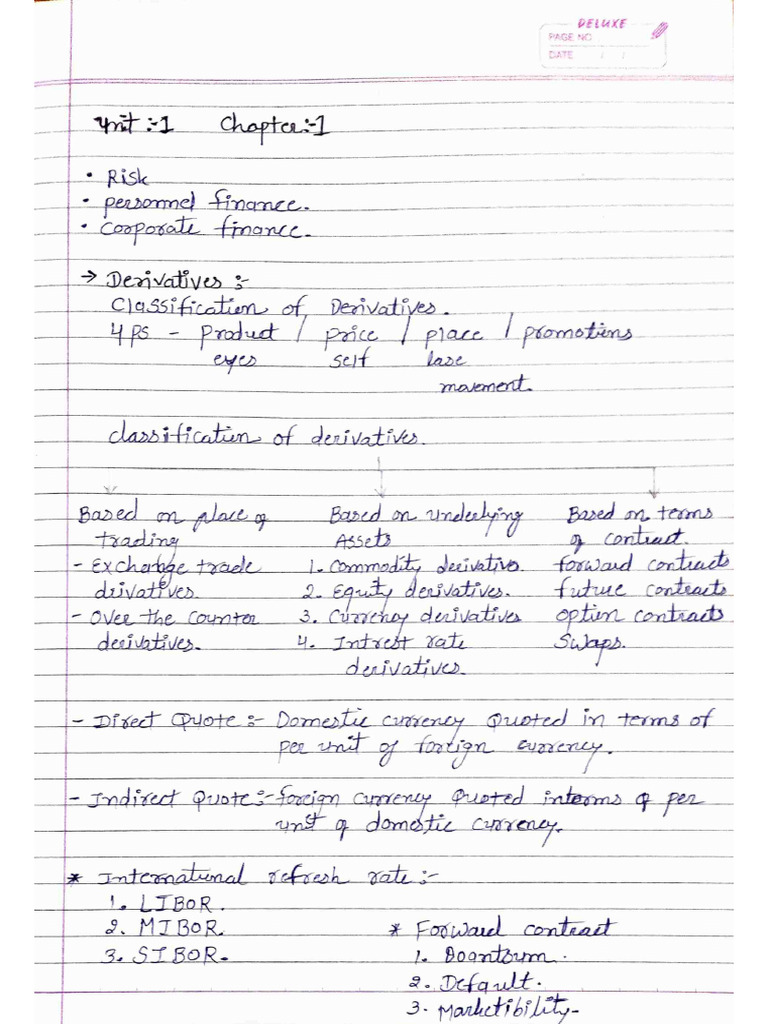 DELUXE
PAGE NO
DATE / /
Unit :- 1 Chapter :- 1
• Risk
• personnel finance.
• corporate finance.
→ Derivatives :-
Classification of Derivatives.
4 ps - Product / price / place / promotions
eyes self
movement.
classification of derivatives.
Based on place of trading
- Exchange trade drivatives.
- Over the counter derivatives.
Based on underlying Assets
1. Commodity derivative.
2. Equity derivatives.
3. Currency derivatives
4. Intrest rate derivatives.
Based on terms of contract.
forward contracts
future contracts
option contracts
Swaps.
- Direct Quote :- Domestic currency Quoted in terms of
per unit of foreign currency.
- Indirect Quote :- foreign currency Quoted interms of per
unit of domestic currency.
* International refresh rate :-
1. LIBOR.
2. MIBOR.
3. SIBOR.
* Forward contract
1.
2. Default.
3. Marketibility-